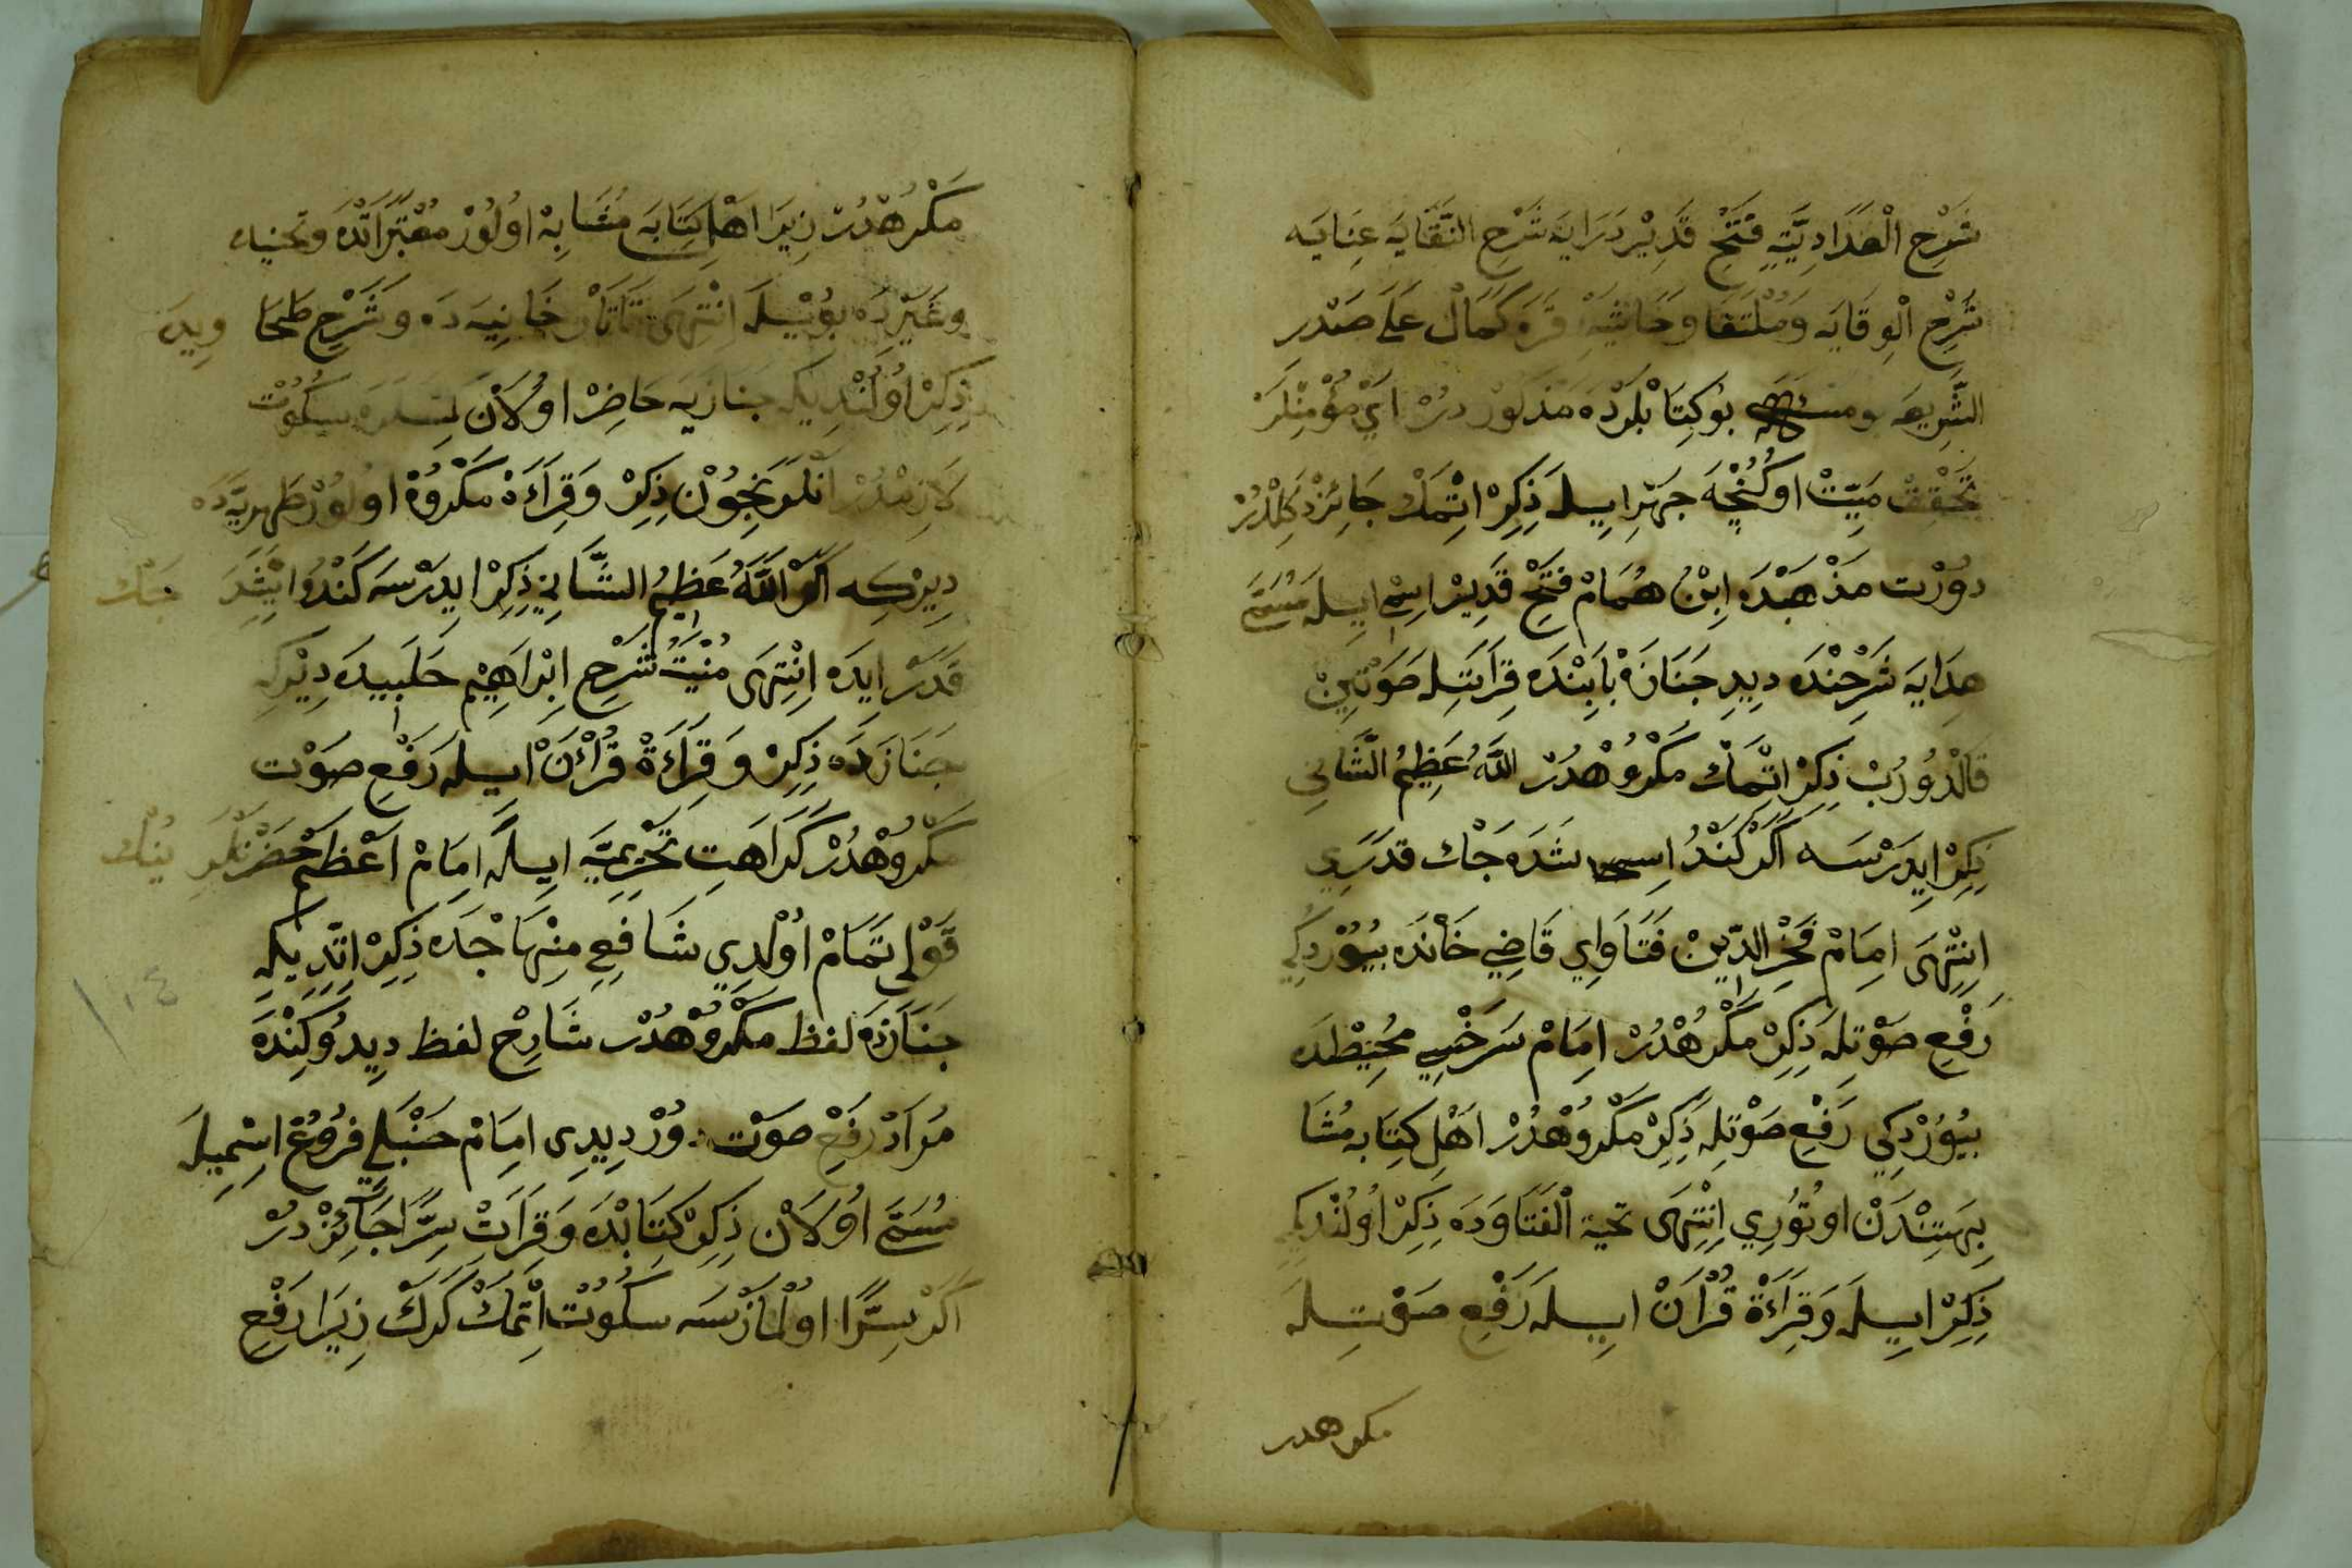 شَرْحِ الْهَدَادِيَّةِ فَتْحِ قَدِيْر دَرَايَه شَرْحِ النِّقَايَه عِنَايَه
شَرْحِ الْوِقَايَه وَمُلْتَقَا وَحَاشِيَهِ قَرَه كَمَالْ عَلَى صَدْرِ
الشَّرِيعَه بُوكِتَابْلَرْدَه مَذكُورْدُرْ اَيْ مُؤْمِنْلَرْ
تَحْقِقْ مَيِّتْ اوكُنْجَه جَهْرِايِيلَه ذِكِرْ اِتْمَكْ جَائِزْ دَكِلْدُرْ
دُوْرْت مَذْهَبْدَه اِبْنُ هُمَامْ فَتْحِ قَدِيرْ اِسْمِ ايِيلَه مُسَمَّى
هِدَايَه شَرْحِنْدَه دِيدِ جَنَازَه بَابِنْدَه قِرَاتَتِله صَوْتِينْ
قَالْدُوُرُبْ ذِكِرْ اِتْمَكْ مَكْرُوُهْدُرْ اللّٰهُ عَظِيمُ الشَّانِي
ذِكِرْ ايِدَرْسَه اَكَرْ كَنْدُ ايشِدَه جَكْ قَدَرَيِ
اِنْتِهَى امَامْ فَخْرِ الدِّينْ فَتَاوَايِ قَاضِي خَانْدَه بُيُوُرْدِكِي
رَفْعِ صَوْتِله ذِكِرْ مَكْرُهْدُرْ اِمَامْ سَرَخْسِي مُحِيطْدَه
بُيُوُرْدِكِي رَفْعِ صَوْتِله ذِكِرْ مَكْرُوهْدُرْ اَهْلِ كِتَابَه مُشَا
بِهَتِنْدَنْ اوتُورِي اِنْتِهَى تحية الْفَتَاوَدَه ذِكِرْ اُولُنْدِيكِ
ذِكِرْ ايِيلَه وَقِرَاءَة قُرْاَنْ ايِيلَه رَفْعِ صَوْتِله
مكرهدر
مَكْرُهْدُرْ زِيرَا اَهْلِ كِتَابَه مُشَابِه اُولُوْرْ مُعْتَبَرَاتْدَه وَتحنياه
وَغَيْرِدَه بُويْلَه اِنْتِهَى تَتَارْخَانِيَه دَه وَشَرْحِ طَحَاوِيدَه
ذِكِرْ اُولُنْدِيكه جَنَازَيَه حَاضِرْ اوُلَانْ كِمْسَلَرَه سُكُوْت
لَازِمْدُرْ اَنْلَرَنِجُوْنْ ذِكِرْ وَقِرَاءَةْ مَكْرُوُهْ اوُلُورْ ظَهِرِيَّه دَه
دِيرْكِه اَكَرْ اللّٰهُ عَظِيمُ الشَّانِي ذِكِرْ ايِدَرْسَه كَنْدُ ايشِدَه جَكْ
قَدَرْ ايِدَه اِنْتِهَى مُنْيَتُ شَرْحِ اِبْرَاهِيْمِ حَلَبِيدَه دِيْرْكِه
جَنَازَه دَه ذِكِرْ وَقِرَاءَةْ قُرْاٰنْ ايِيلَه رَفْعِ صَوْت
مَكْرُوهْدُرْ كَرَاهَتِ تَحْرِيمِيَّه ايِيلَه امَامْ اَعْظَمْ حَضْرَتْلَرِ نُيْك
قَوْلِ تَمَامْ اُوْلْدِي شَافِعِي مِنْهَاجْدَه ذِكِرْ اِتْدِيكه
جَنَازَه لفظ مَكْرُوهْدُرْ شَارِحْ لفظ دِيِدُوكَنْدَه
مُرَادْ رَفْعِ صَوْت دُورْ دِيدِى امَامْ حَنْبَلِي فُرُوعْ اِسْمِيلَه
مُسَمَّى اوُلَانْ ذِكِرْ كِتَابْدَه وَقِرَاءَتْ سِرًّا جَآئِزْ دُرْ
اَكَرْ سِرًّا اوُلْمَازْسَه سكُوْت اِتْمَكْ كَرَكْ زِيرَا رَفْعِ